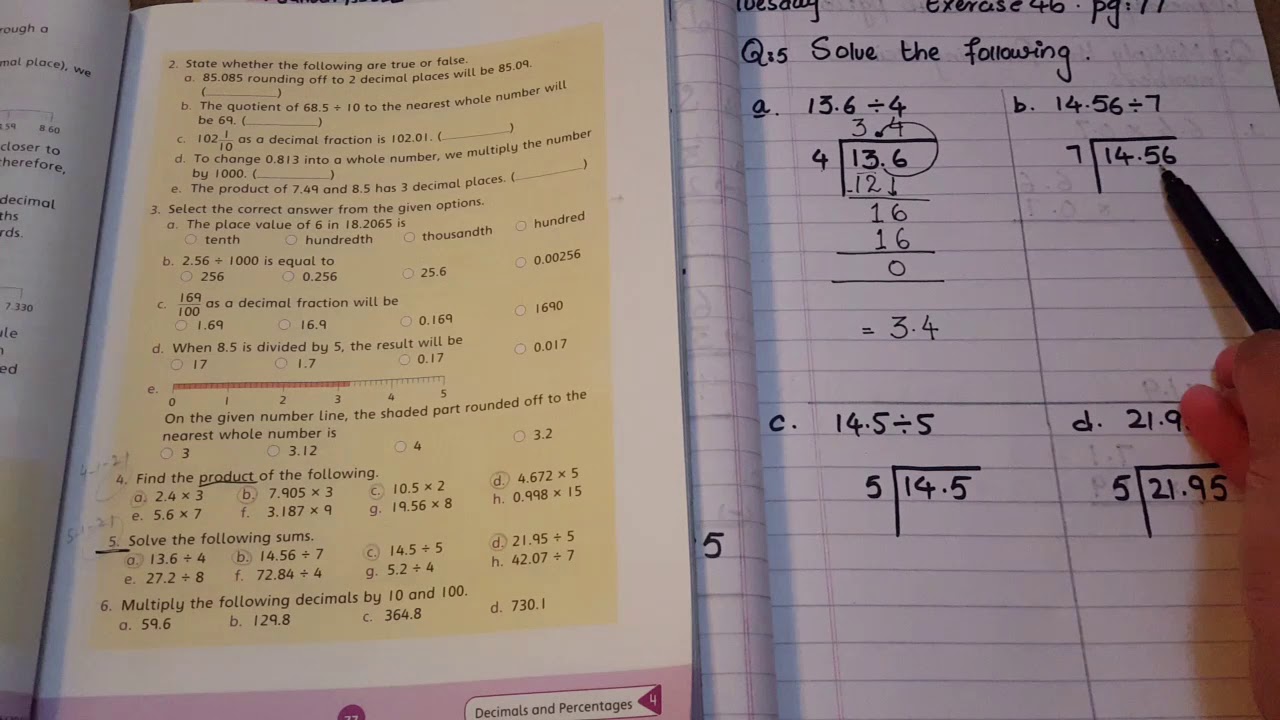 rough a
mal place), we
8.60
closer to
herefore,
decimal
ths
rds.
7.330
ule
ed
2. State whether the following are true or false.
a. 85.085 rounding off to 2 decimal places will be 85.09.
(__________)
b. The quotient of 68.5 ÷ 10 to the nearest whole number will
be 69. (__________)
c. 102 1/10 as a decimal fraction is 102.01. (__________)
d. To change 0.813 into a whole number, we multiply the number
by 1000. (__________)
e. The product of 7.49 and 8.5 has 3 decimal places. (__________)
3. Select the correct answer from the given options.
a. The place value of 6 in 18.2065 is
tenth hundredth thousandth hundred
b. 2.56 ÷ 1000 is equal to
256 0.256 25.6 0.00256
c. 169/100 as a decimal fraction will be
1.69 16.9 0.169 1690
d. When 8.5 is divided by 5, the result will be
17 1.7 0.17 0.017
e.
0 1 2 3 4 5
On the given number line, the shaded part rounded off to the
nearest whole number is
3 3.12 4 3.2
4. Find the product of the following.
a. 2.4 × 3 b. 7.905 × 3 c. 10.5 × 2 d. 4.672 × 5
e. 5.6 × 7 f. 3.187 × 9 g. 19.56 × 8 h. 0.998 × 15
5. Solve the following sums.
a. 13.6 ÷ 4 b. 14.56 ÷ 7 c. 14.5 ÷ 5 d. 21.95 ÷ 5
e. 27.2 ÷ 8 f. 72.84 ÷ 4 g. 5.2 ÷ 4 h. 42.07 ÷ 7
6. Multiply the following decimals by 10 and 100.
a. 59.6 b. 129.8 c. 364.8 d. 730.1
77
Decimals and Percentages 4
Tuesday Exercase 4b. pg:77
Q:5 Solve the following.
a. 13.6 ÷ 4
3.4
4 13.6
-12
16
16
0
= 3.4
b. 14.56 ÷ 7
7 14.56
c. 14.5 ÷ 5
5 14.5
d. 21.9
5 21.95
5